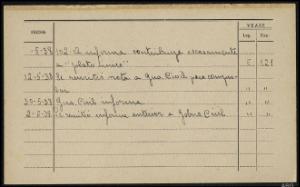 FECHA
VEASE
Leg. Exp.
-5-38 102. A informa contribuye escasamente
a "plato único" 5 121
12-5-38 Se remitió nota a Gua. Civil para comprobar
" "
30-5-38 Gua. Civil informa " "
2-5-38 Se remitió informe anterior a Gobno Civil " "